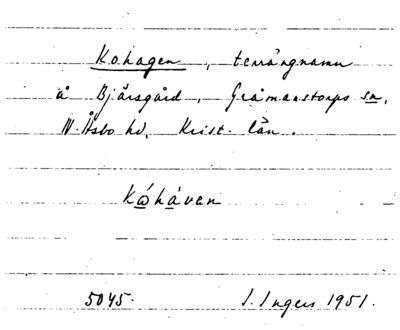 Kohagen, terrängnamn
å Bjärsgård, Gråmanstorps sn,
N. Åsbo hd, Krist. län.
kǿhávan
5045. I. Ingers 1951.